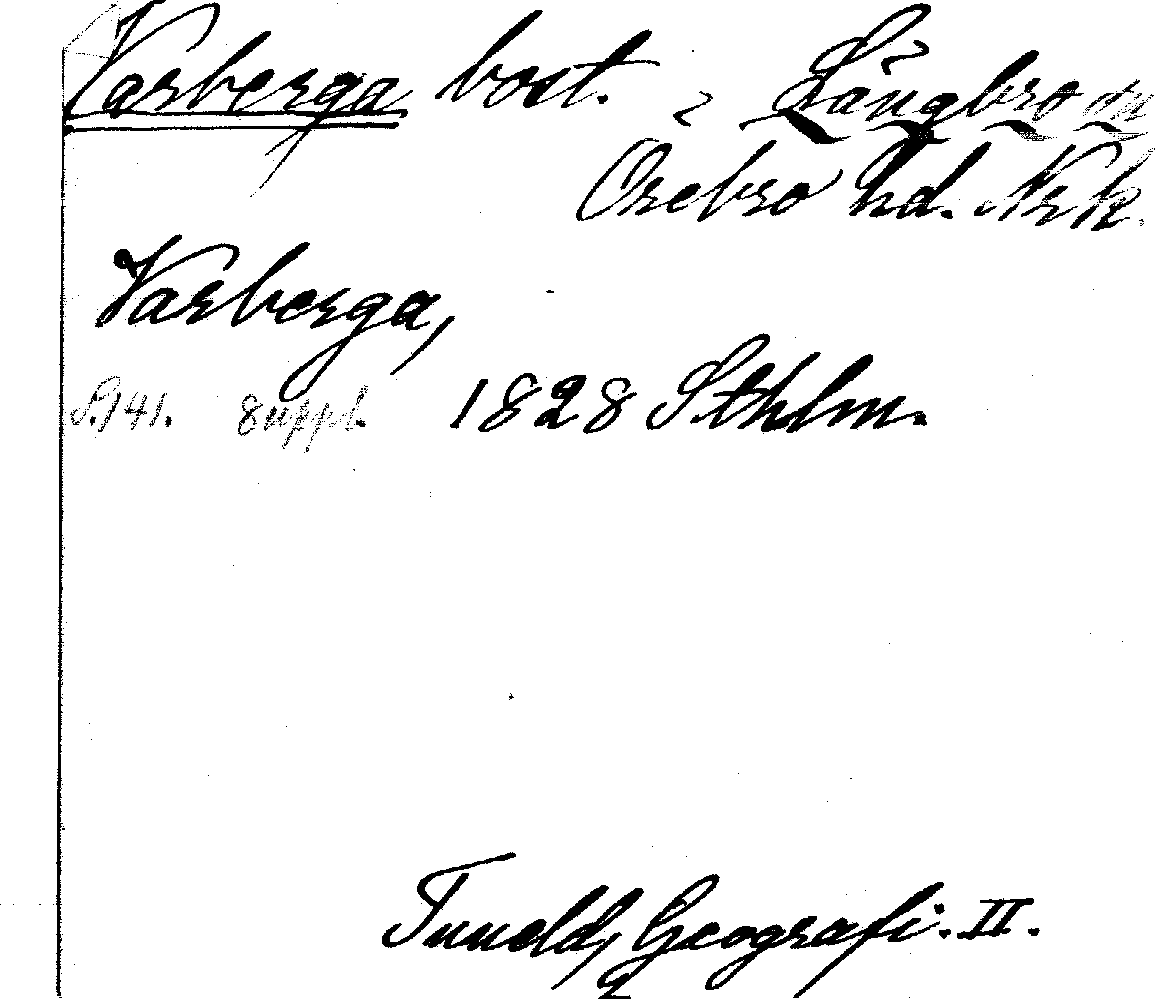 Varberga bost. i Långbro sn
Örebro hd. Nrk.
Varberga,
S. 141. 8 uppl. 1828 Sthlm.
Tuneld, Geografi. II.